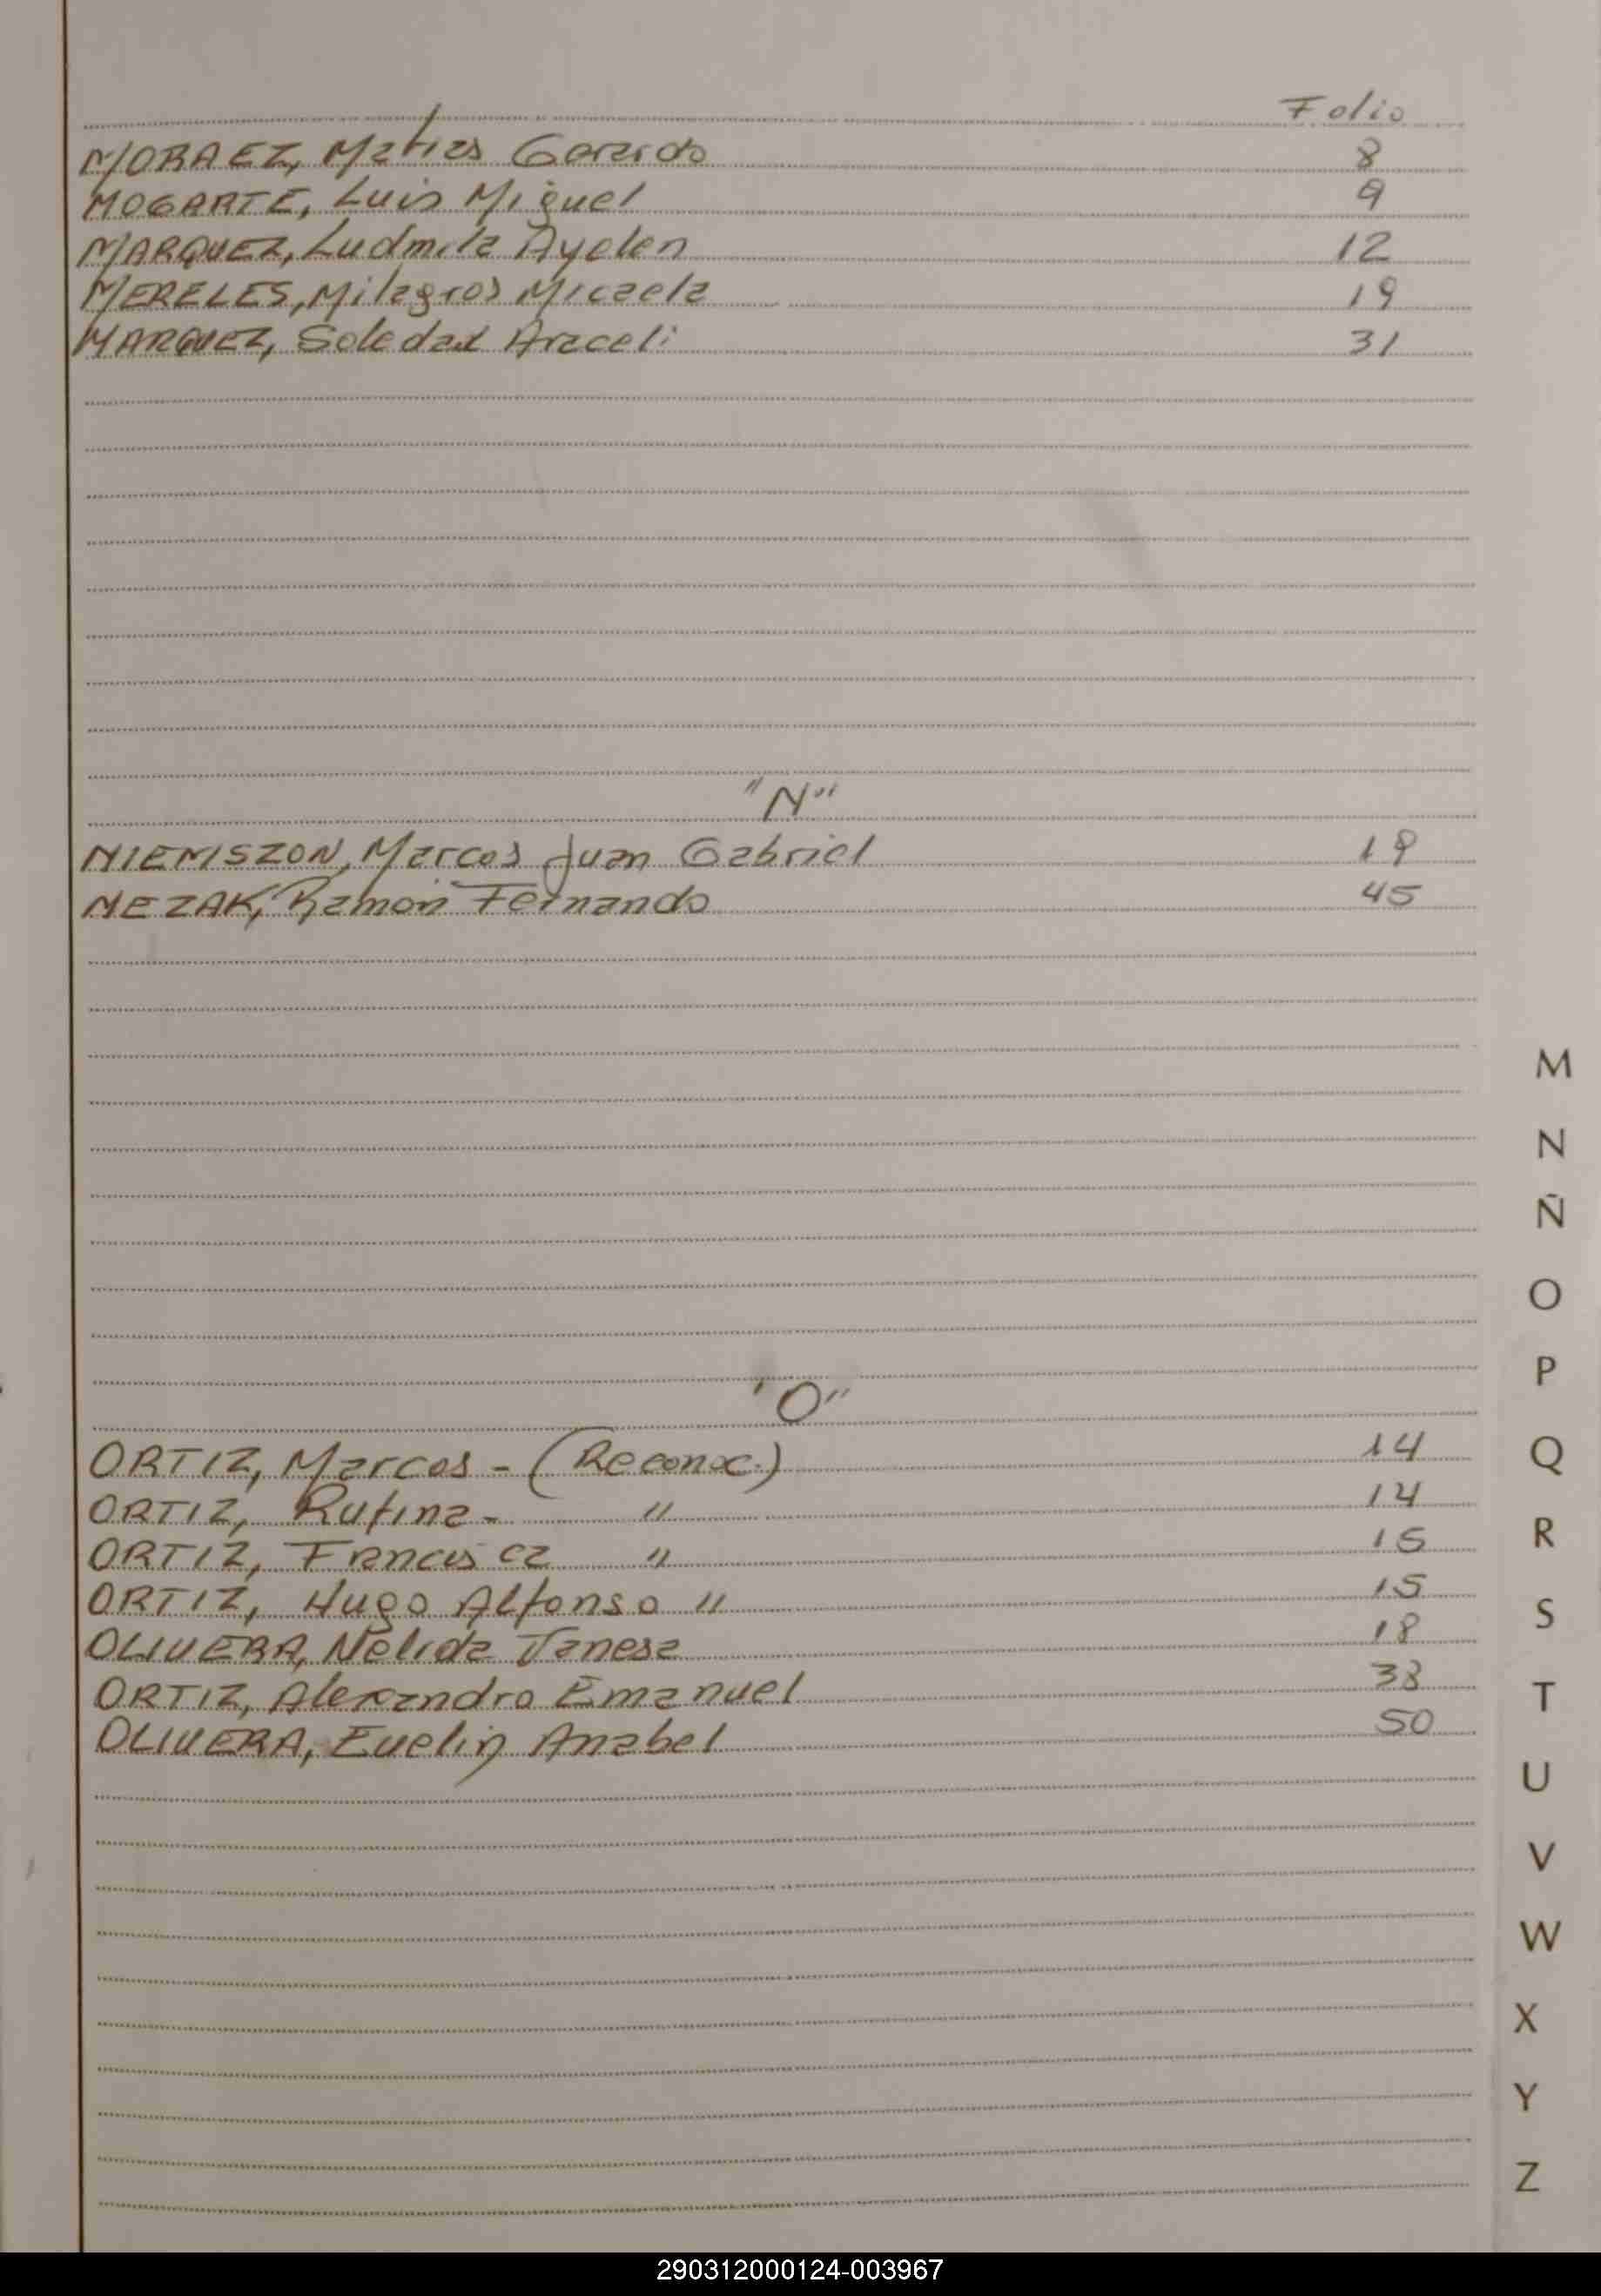 Folio
MORAEZ, Matias Gerardo 8
MOGARTE, Luis Miguel 9
MARQUEZ, Ludmila Ayelen 12
MERELES, Milagros Micaela 19
MARQUEZ, Soledad Araceli 31
"N"
NIEMISZON, Marcos Juan Gabriel 18
NEZAK, Ramon Fernando 45
"O"
ORTIZ, Marcos - (Reconoc.) 14
ORTIZ, Rufina - " 14
ORTIZ, Francisca " 15
ORTIZ, Hugo Alfonso " 15
OLIVERA, Nelida Vanesa 18
ORTIZ, Alexandro Emanuel 38
OLIVERA, Evelin Anabel 50
M
N
Ñ
O
P
Q
R
S
T
U
V
W
X
Y
Z
290312000124-003967